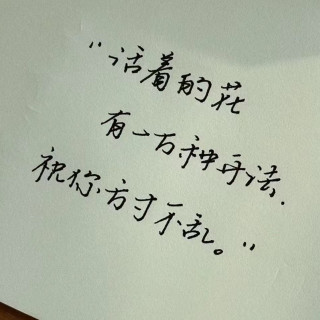 “活着的花
有一万种开法.
祝你方寸不乱。”